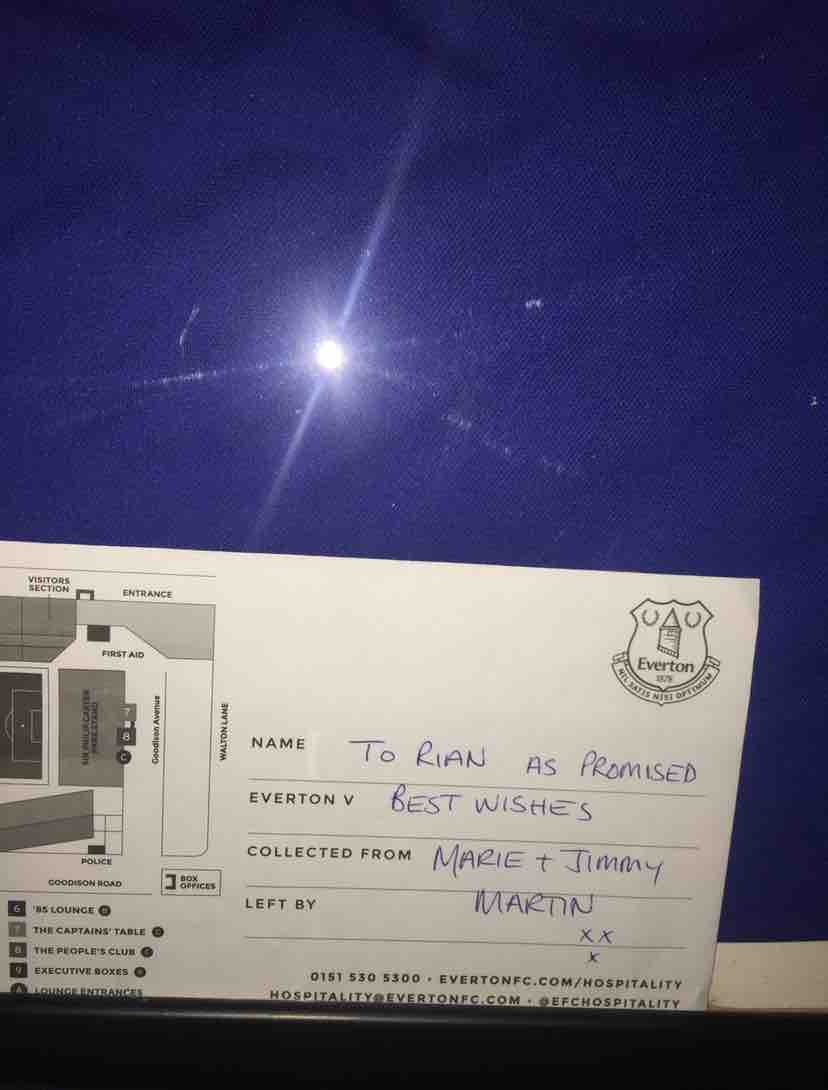 VISITORS
SECTION
ENTRANCE
FIRST AID
SIR PHILIP CARTER
PARK STAND
7
8
C
Goodison Avenue
WALTON LANE
POLICE
GOODISON ROAD
BOX
OFFICES
6 '85 LOUNGE
7 THE CAPTAINS' TABLE C
8 THE PEOPLE'S CLUB
9 EXECUTIVE BOXES
A LOUNGE ENTRANCES
Everton
1878
NIL SATIS NISI OPTIMUM
NAME TO RIAN AS PROMISED
EVERTON V BEST WISHES
COLLECTED FROM MARIE + JIMMY
LEFT BY MARTIN
X X
X
0151 530 5300 • EVERTONFC.COM/HOSPITALITY
HOSPITALITY@EVERTONFC.COM • @EFCHOSPITALITY